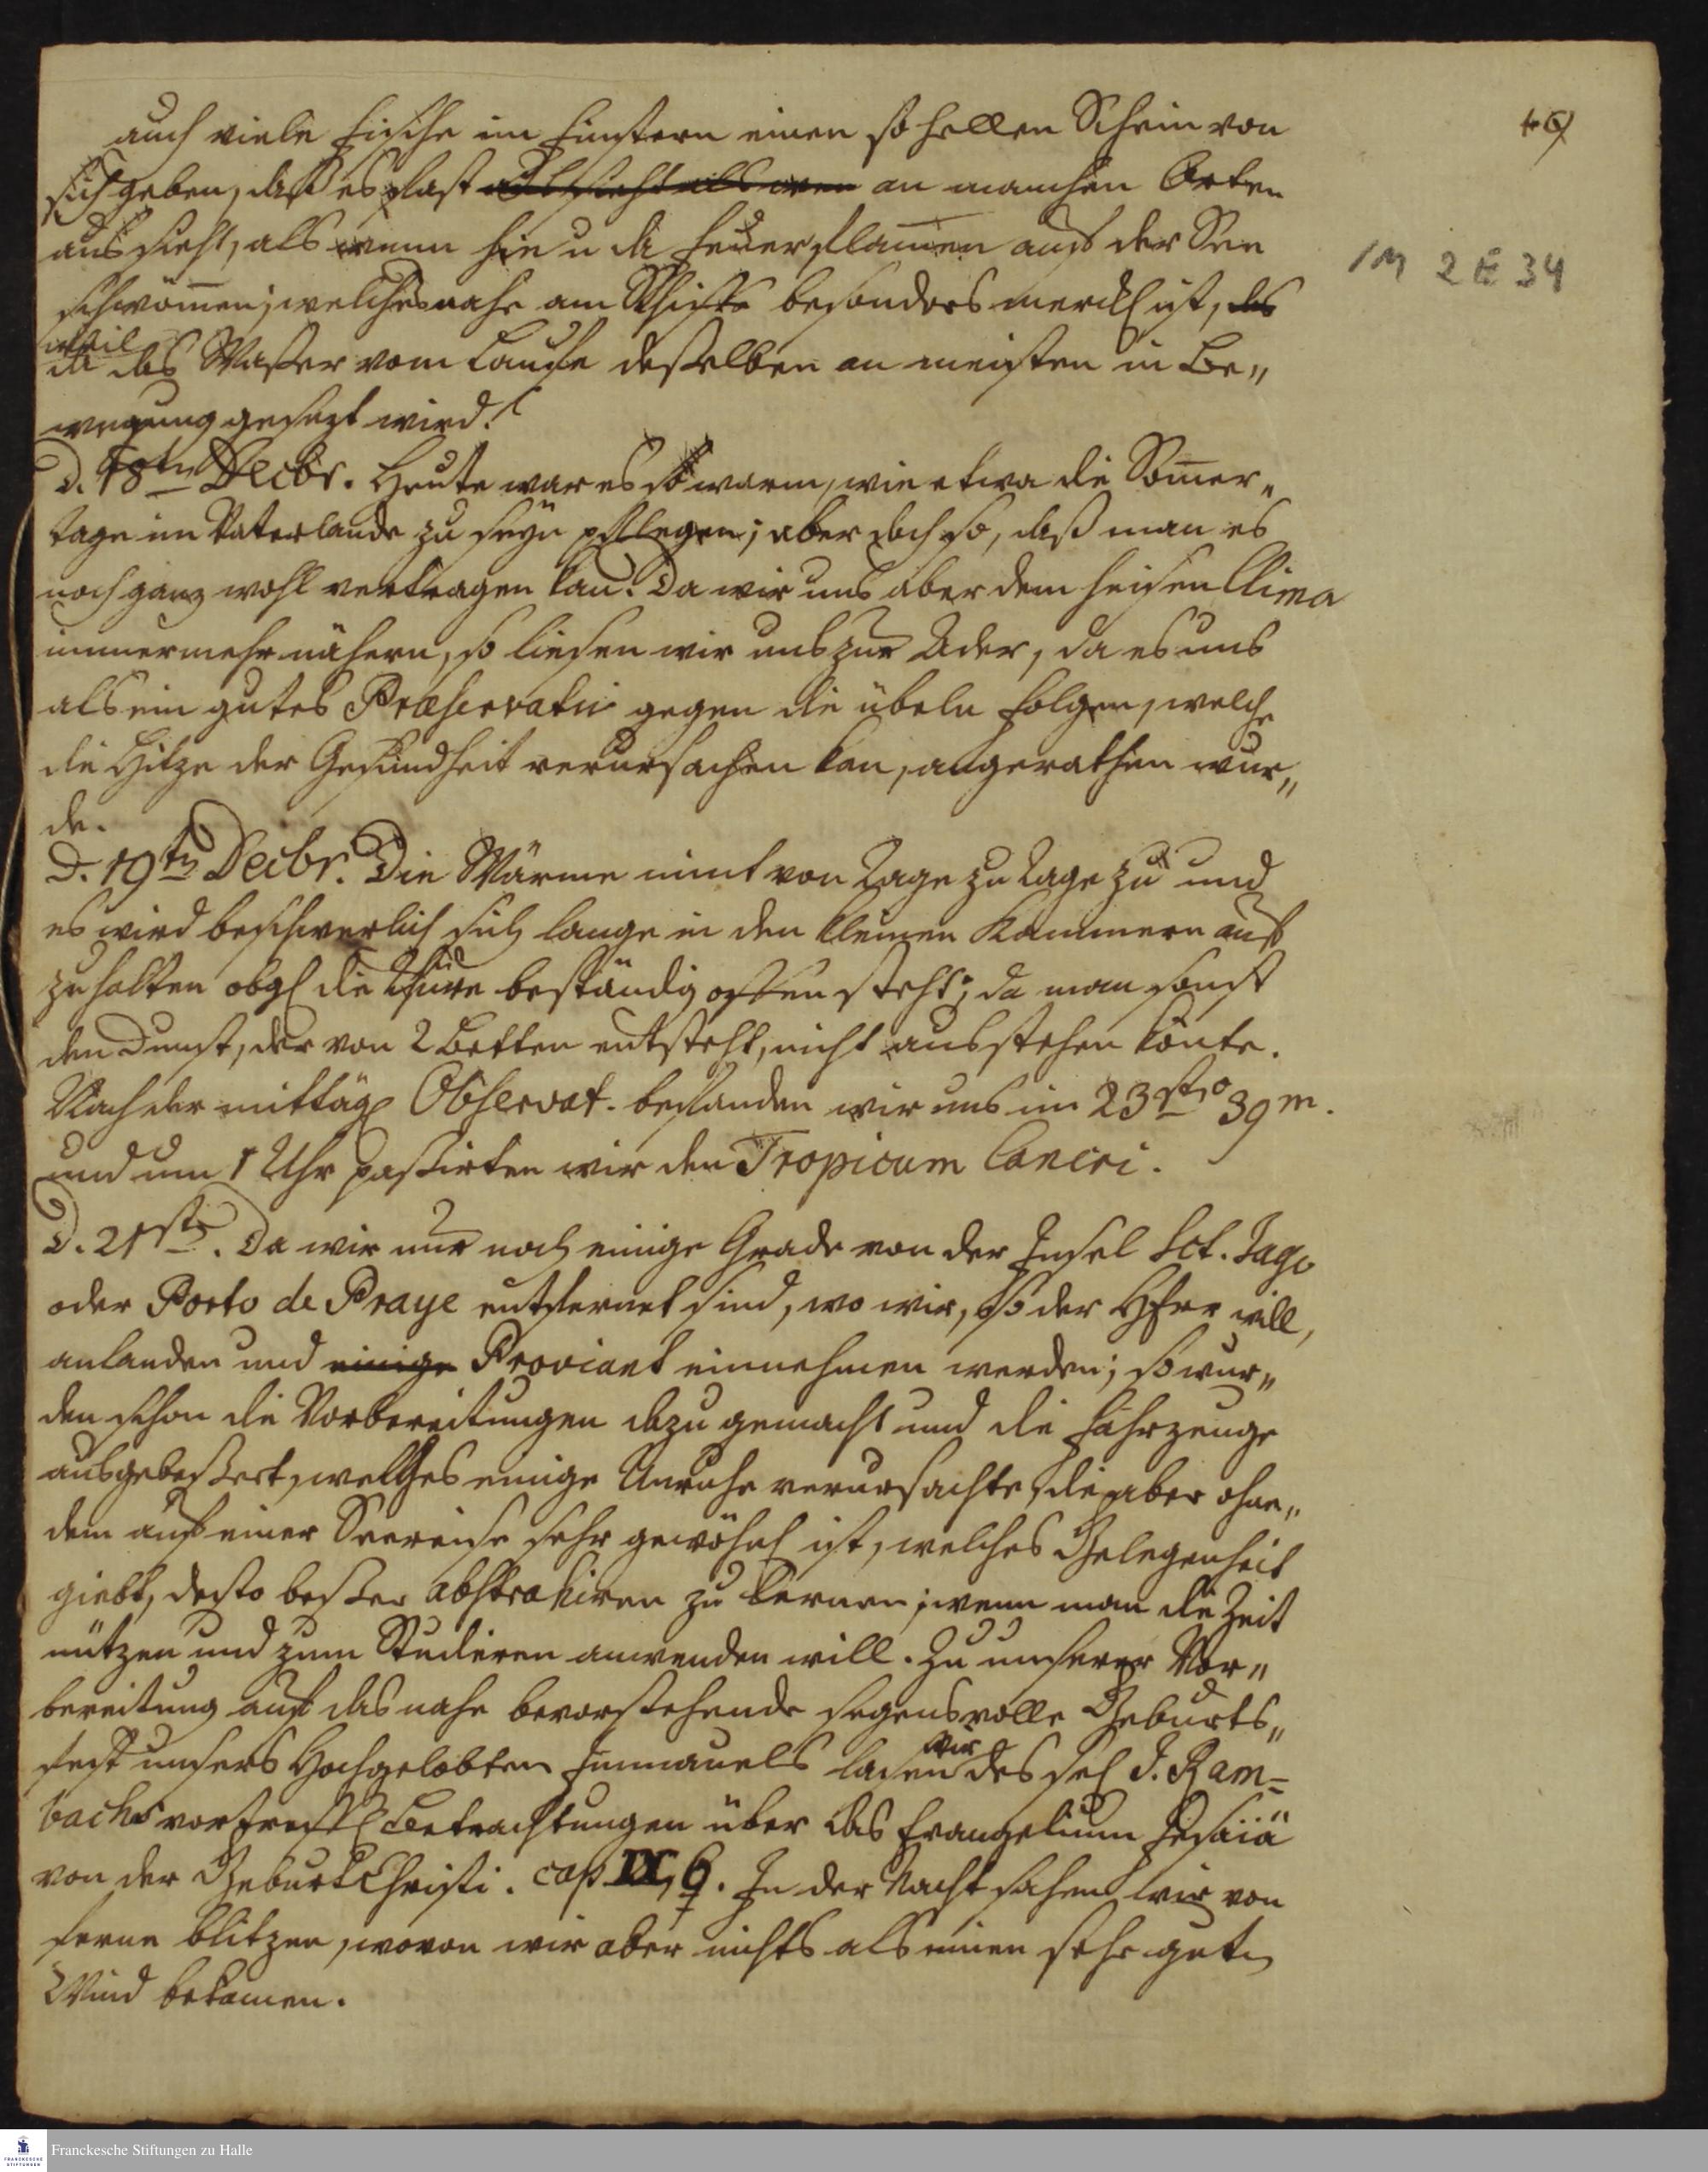 auch viele Fische im Finstern einen so hellen Schein von
sich geben, daß es fast aussieht als wen an manchen Orten
aus sieht, als wenn hie u da Feuerflam̄en auf der See
schwöm̄en; welches nahe am Schiffe besonders merckl ist, das
weil
da das Waßer vom Laufe deßelben am meisten in Be„
wegung gesezt wird.
D. 18ten Decbr. Heute war es so warm, wie etwa die Som̄er„
tage im Vaterlande zu seyn pflegen; aber doch so, daß man es
noch ganz wohl vertragen kan. Da wir uns aber dem heisen Clima
immermehr nähern, so liesen wir uns zur Ader, da es uns
als ein gutes Præservativ gegen die übeln Folgen, welche
die Hitze der Gesundheit verursachen kan, angerathen wur„
de.
D. 19ten Decbr. Die Wärme nimt von Tage zu Tage zu und
es wird beschwerlich sich lange in den kleinen Kammern auf
zuhalten obgl die Thüre beständig offen steht; da man sonst
den Dunst, der von 2 Betten entsteht, nicht ausstehen könte.
Nach der mittägl Observat. befanden wir uns im 23sten° 39 m.
und um 1 Uhr paßirten wir den Tropicum Cancri.
D. 21sten. Da wir nur noch einige Grade von der Insel Sct. Jago
oder Porto de Praye entfernet sind, wo wir, so der Herr will,
anlanden und einige Proviant einnehmen werden; so wur„
den schon die Vorbereitungen dazu gemacht und die Fahrzeuge
ausgebeßert, welches einige Unruhe verursachte, die aber ohne„
dem auf einer Seereise sehr gewöhnl ist, welches Gelegenheit
giebt, desto beßer abstrahiren zu lernen; wenn man die Zeit
nützen und zum Studieren anwenden will. Zu unserer Vor„
bereitung auf das nahe bevorstehende segensvolle Geburts„
fest unsers Hochgelobten Immanuels lasen wir des sel D. Ram=
bachs vortreffl Betrachtungen über das Evangelium Jesaiä
von der Geburt Christi. cap IX, 6. In der Nacht sahen wir von
ferne blitzen, wovon wir aber nichts als einen sehr guten
Wind bekamen.
1M 2 E 34
Franckesche Stiftungen zu Halle